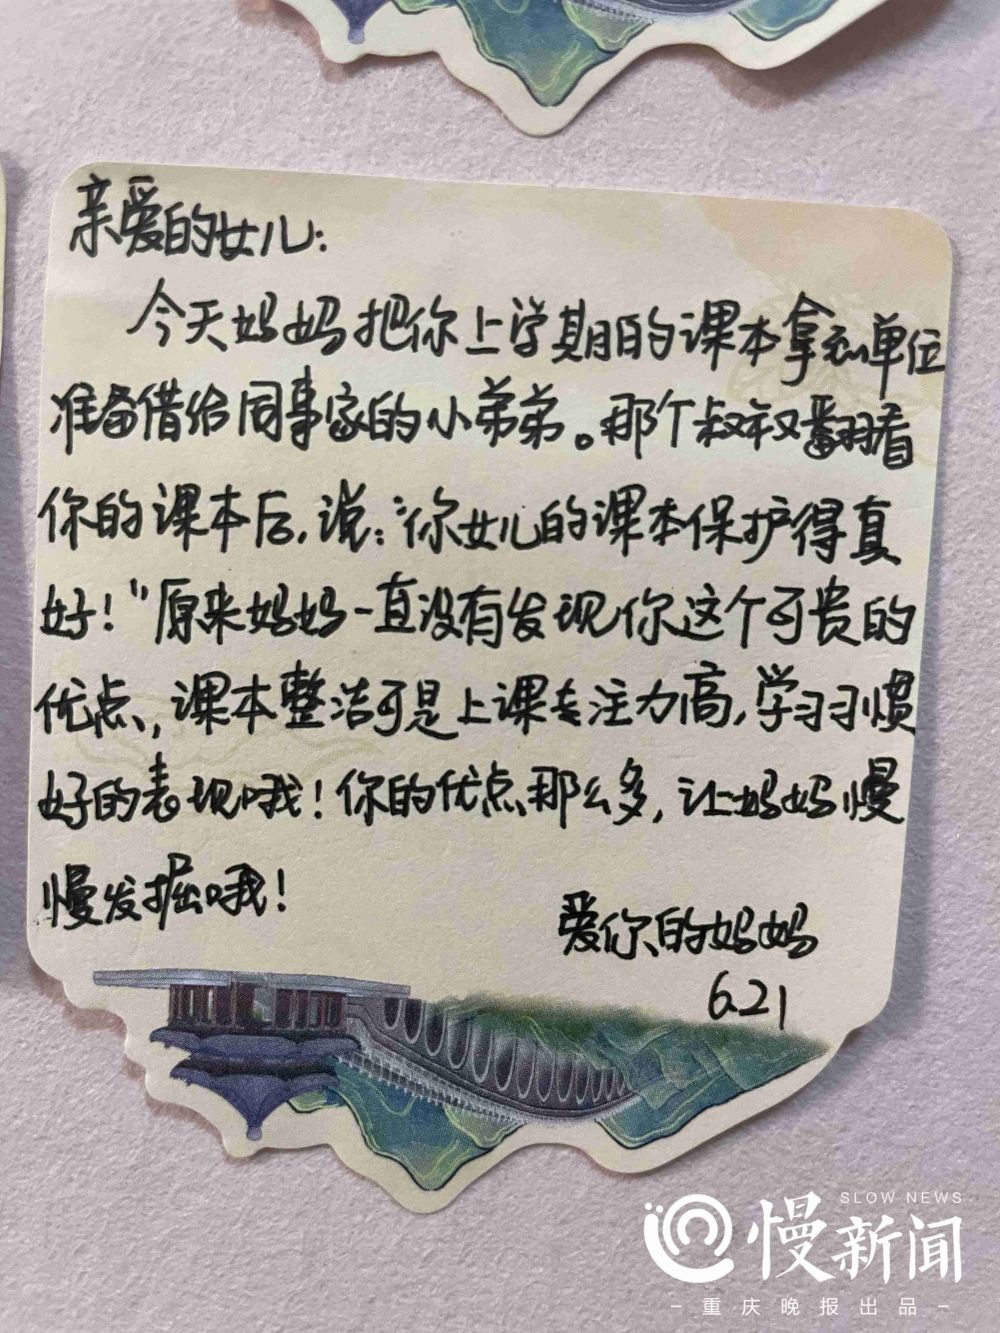 亲爱的女儿：
今天妈妈把你上学期的课本拿到单位
准备借给同事家的小弟弟。那个叔叔翻看
你的课本后，说：“你女儿的课本保护得真
好！”原来妈妈一直没有发现你这个可贵的
优点，课本整洁可是上课专注力高，学习习惯
好的表现哦！你的优点那么多，让妈妈慢
慢发掘哦！
爱你的妈妈
6.21
SLOW NEWS
慢新闻
-重庆晚报出品-